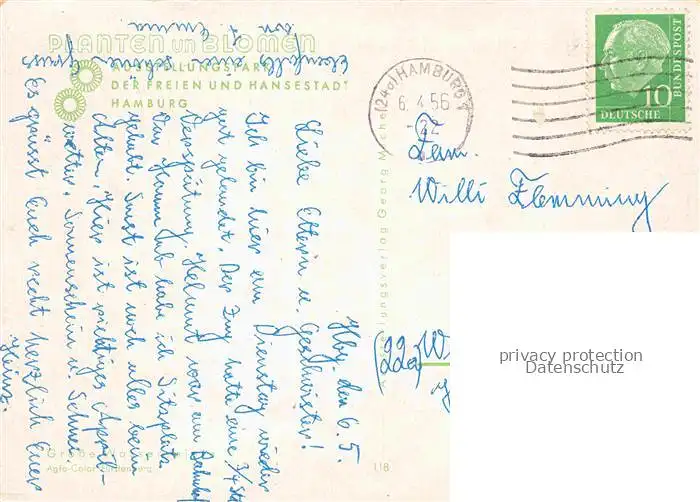 PLANTEN un BLOMEN
AUSSTELLUNGSPARK
DER FREIEN UND HANSESTADT
HAMBURG
(24a) HAMBURG 1
6. 4. 56
DEUTSCHE
BUNDESPOST
10
Fam.
Willi Flemming
(22a) W
privacy protection
Datenschutz
Hbg. den 6.5.
Liebe Eltern u. Geschwister!
Ich bin hier am Dienstag wieder
gut gelandet. Der Zug hatte eine 3/4 Std
Verspätung. Helmut war am Bahnhof
habe ich Sitzplatz
gehabt. Sonst ist noch alles beim
Alten. Hier ist richtiges April-
wetter. Sonnenschein u. Schnee.
Es grüsst Euch recht herzlich Euer
Heinz.
Ebenfalls einen schönen Gruss
von
Große Wasser
Agfa-Color
118
Verlag Georg